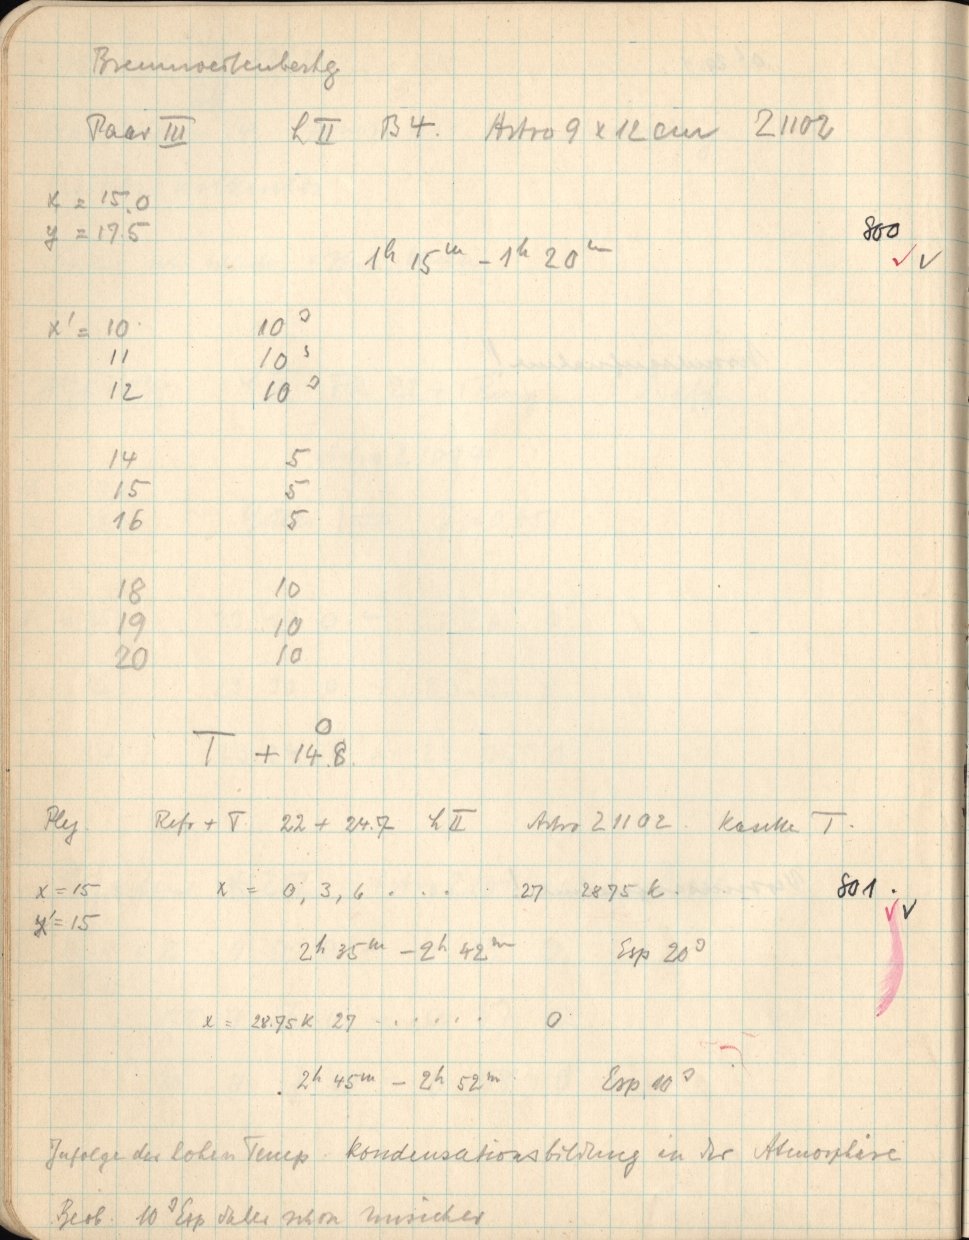 Paar III h II B 4. Astro 9 x 12 cm Z 1102
x = 15.0
y = 17.5
800
1h 15m - 1h 20m
x' = 10 10 s
11 10 s
12 10 s
14 5
15 5
16 5
18 10
19 10
20 10
T + 14°.8
Plej. Refr + T. 22 + 24.7 h II Astro Z 1102. Kasette T.
x = 15 x = 0, 3, 6 . . . . 27 28.75 k. 801.
y' = 15
2h 35m - 2h 42m Exp 20 s
x = 28.75 k 27 . . . . . . 0
2h 45m - 2h 52m Exp 10 s
Infolge der hohen Temp. Kondensationsbildung in der Atmosphäre
Beob. 10 s Exp daher schon unsicher